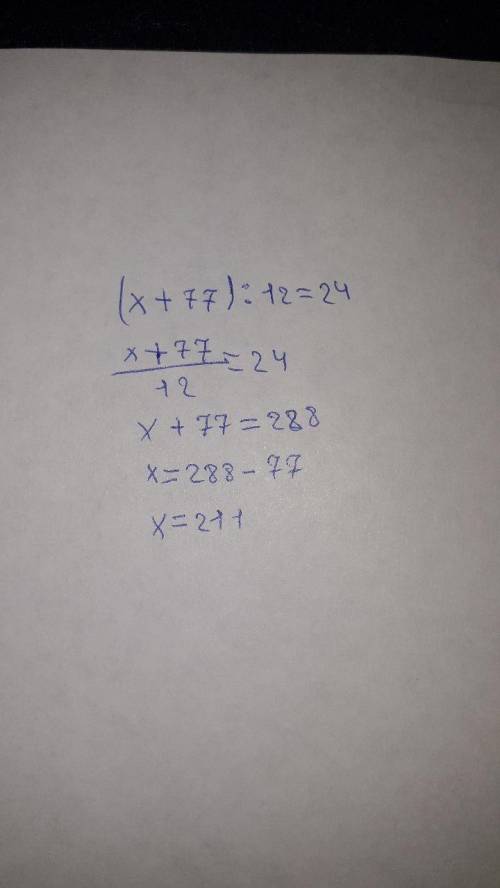 (x + 77) : 12 = 24
x + 77 / 12 = 24
x + 77 = 288
x = 288 - 77
x = 211